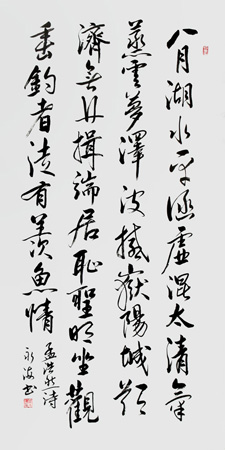 八月湖水平涵虛混太清氣
蒸雲夢澤波撼嶽陽城欲
濟無舟楫端居恥聖明坐觀
垂釣者徒有羨魚情
孟浩然詩
永海書